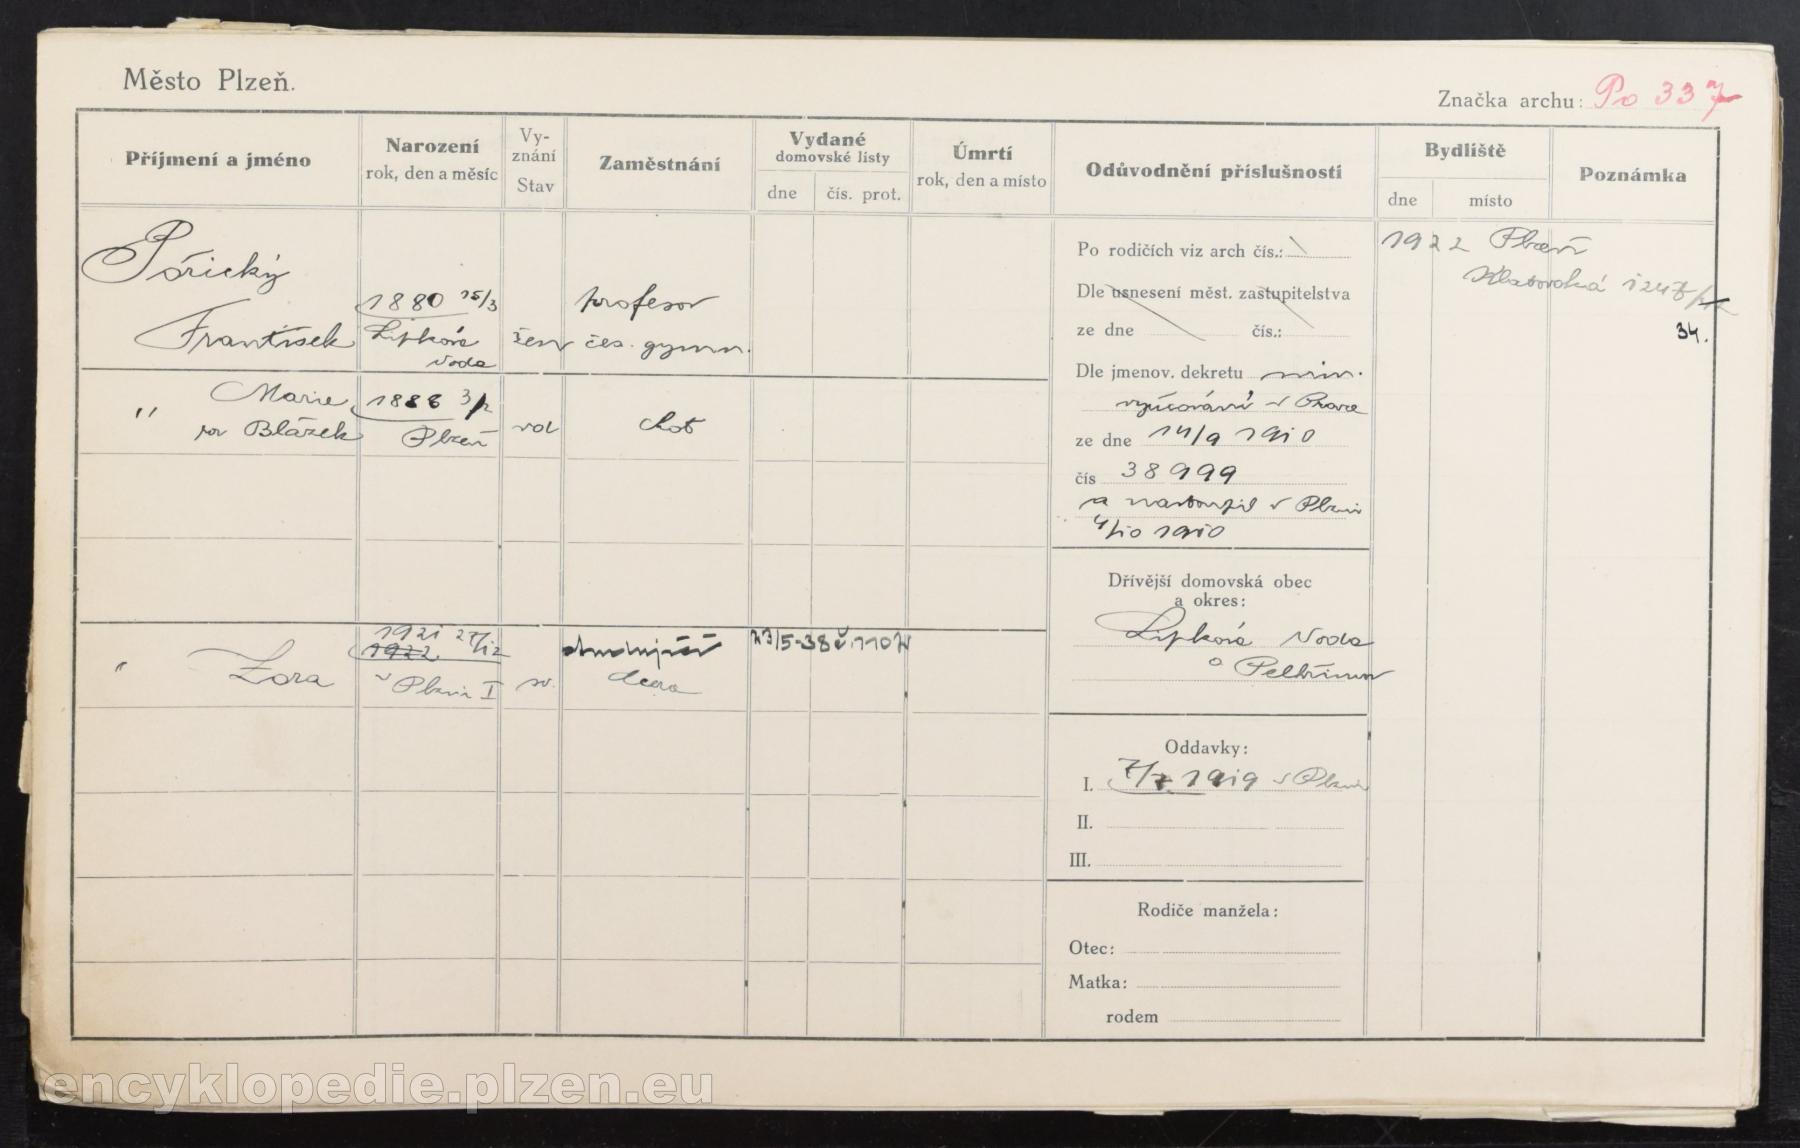 Město Plzeň.
Značka archu: Po 337
Příjmení a jméno
Narození
rok, den a měsíc
Vy-
znání
Stav
Zaměstnání
Vydané
domovské listy
dne
čís. prot.
Úmrtí
rok, den a místo
Odůvodnění příslušnosti
Bydliště
dne
místo
Poznámka
Pořický
František
1880 15/3
Lipková
Voda
žen
profesor
čes. gymn.
" Marie
roz Blážek
1886 3/2
Plzeň
vd
choť
" Zora
1921 27/12
1922
v Plzni I
sv.
dcera
23/5-38 č.1107
Po rodičích viz arch čís.:
Dle usnesení měst. zastupitelstva
ze dne čís.:
Dle jmenov. dekretu min.
vyučování v Praze
ze dne 14/9 1910
čís 38999
a nastoupil v Plzni
4/10 1910
Dřívější domovská obec
a okres:
Lipková Voda
o Pelhřimov
Oddavky:
I. 7/7 1919 v Plzni
II.
III.
Rodiče manžela:
Otec:
Matka:
rodem
1922 Plzeň
Klatovská
34.
encyklopedie.plzen.eu